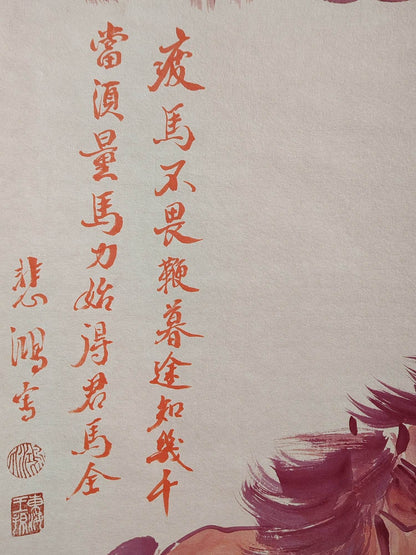 疲馬不畏鞭暮途知幾千
當須量馬力始得君馬全
悲鴻写
東海王孫